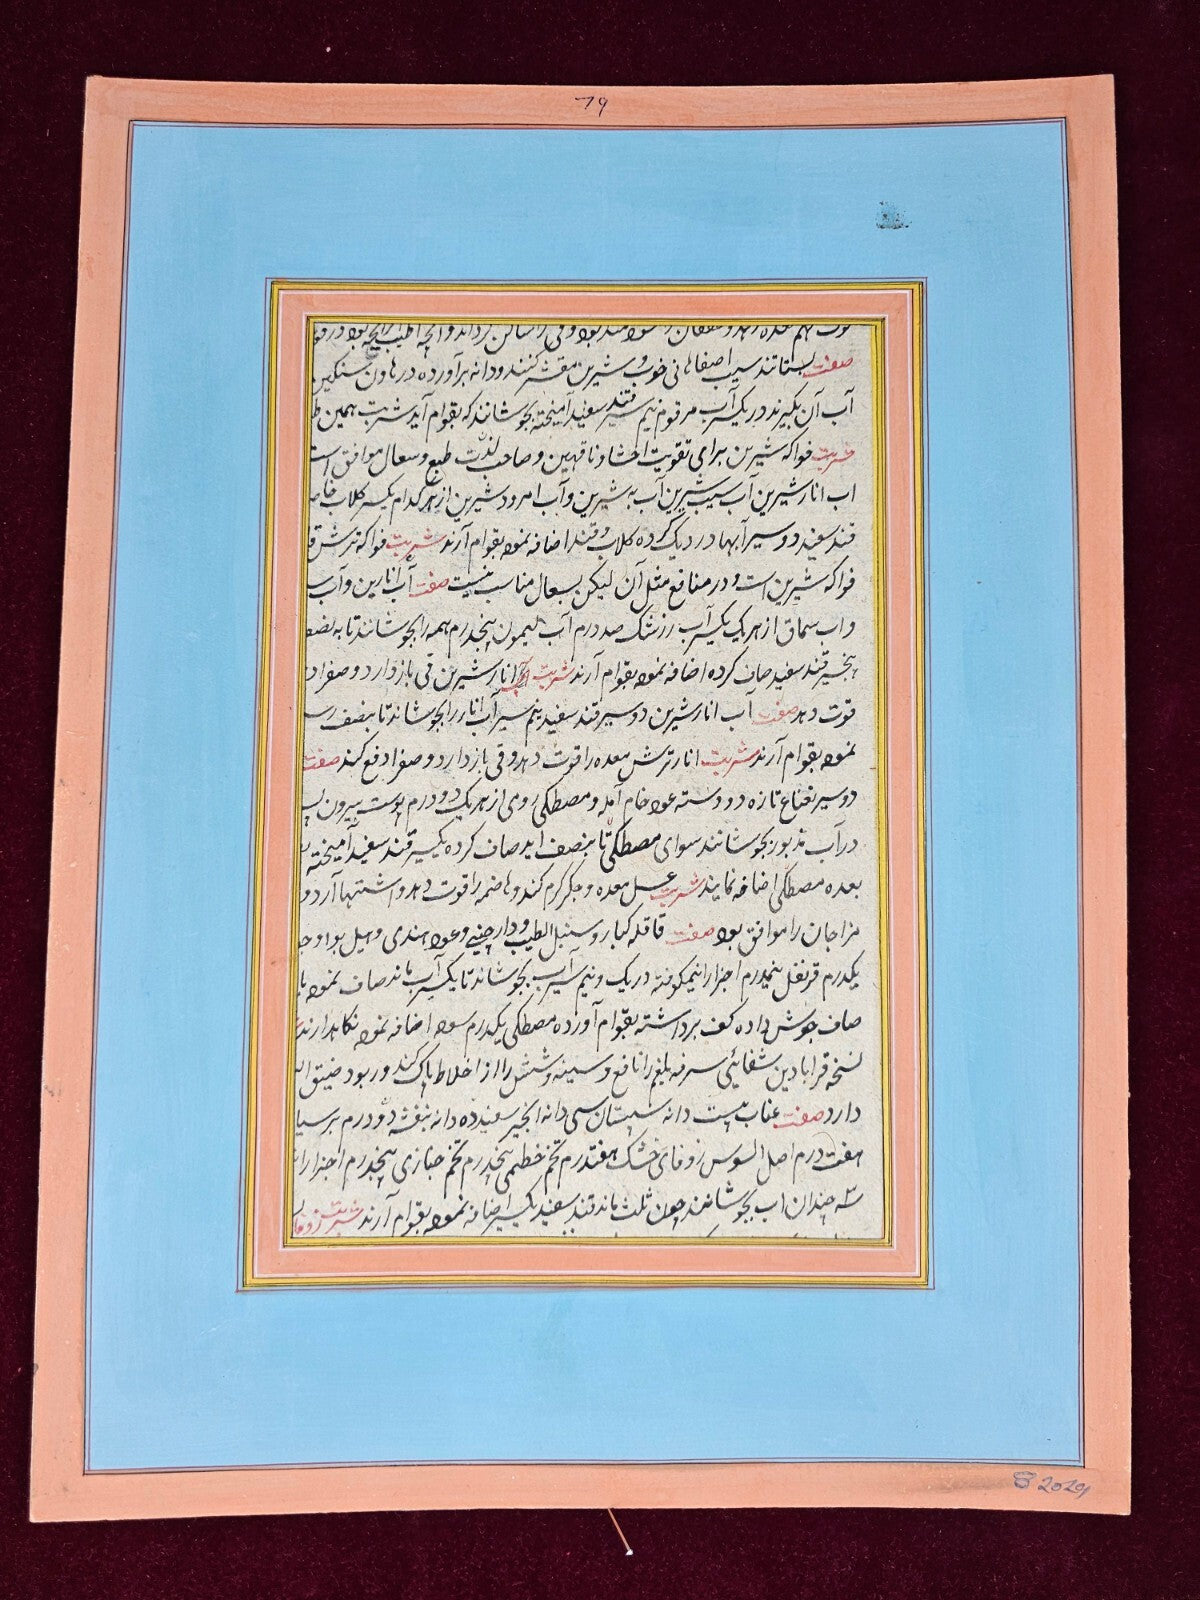 79
صفت بستانند سیب اصفاهانی خوب و شیرین مقشر کنند و دانه برآورده در هاون سنگین
آب آن بگیرند در یکسیر آب مرقوم نیم سیر قند سفید آمیخته بجوشانند که بقوام آید شربت همین
شربت فواکه شیرین برای تقویت احشا و ناقهین و صاحب لذت طبع و سعال موافق است
اب انار شیرین آب سیب شیرین آب به شیرین و آب امرود شیرین از هر کدام یکسیر کلاب
قند سفید دو سیر آبها در دیک کرده کلاب و قند اضافه نموده بقوام آرند شربت فواکه ترش
فواکه شیرین است و در منافع مثل آن لیکن بسعال مناسب نیست صفت آب انارین و آب
و اب سماق از هر یک یکسیر آب زرشک صد درم آب لیمون پنجدرم همه را بجوشانند تا به
پنجسیر قند سفید صاف کرده اضافه نموده بقوام آرند شربت آب انار شیرین قی باز دارد و صفرا
قوت دهد صفت آب انار شیرین دو سیر قند سفید نیم سیر آب انار را بجوشاند تا بنصف رسد
نموده بقوام آرند شربت انار ترش معده را قوت دهد و قی باز دارد و صفرا دفع کند صفت
دو سیر نعناع تازه دو دسته عود خام آمله و مصطکی رومی از هر یک دو درم پوست بیرون
در آب مذبور بجوشانند سوای مصطکی تا بنصف اید صاف کرده یکسیر قند سفید آمیخته
بعده مصطکی اضافه نمایند شربت عسل معده و جگر گرم کند و هاضمه را قوت دهد و اشتها آرد و
مزاجان را موافق بود صفت قاقله کبار و سنبل الطیب و دارچینی و عود هندی و هیل بوا و
یکدرم قرنفل نیمدرم اجزا را نیمکوفته در یک و نیم سیر آب بجوشاند تا یکسیر آب ماند صاف نموده
صاف جوش داده کف برداشته بقوام آورده مصطکی یکدرم سوده اضافه نموده نکاهدارند
نسخه قرابادین شفائی سرفه بلغم را نافع و سینه و شش را از اخلاط پاک کند و ربو و ضیق
دارد صفت عناب بیست دانه سپستان سی دانه انجیر سفید ده دانه بنفشه دو درم
هفت درم اصل السوس زوفای خشک هفتدرم تخم خطمی پنجدرم تخم خبازی پنجدرم اجزا را
سه چندان اب بجوشانند چون ثلث ماند قند سفید یکسیر اضافه نموده بقوام آرند شربت زوفا
2029